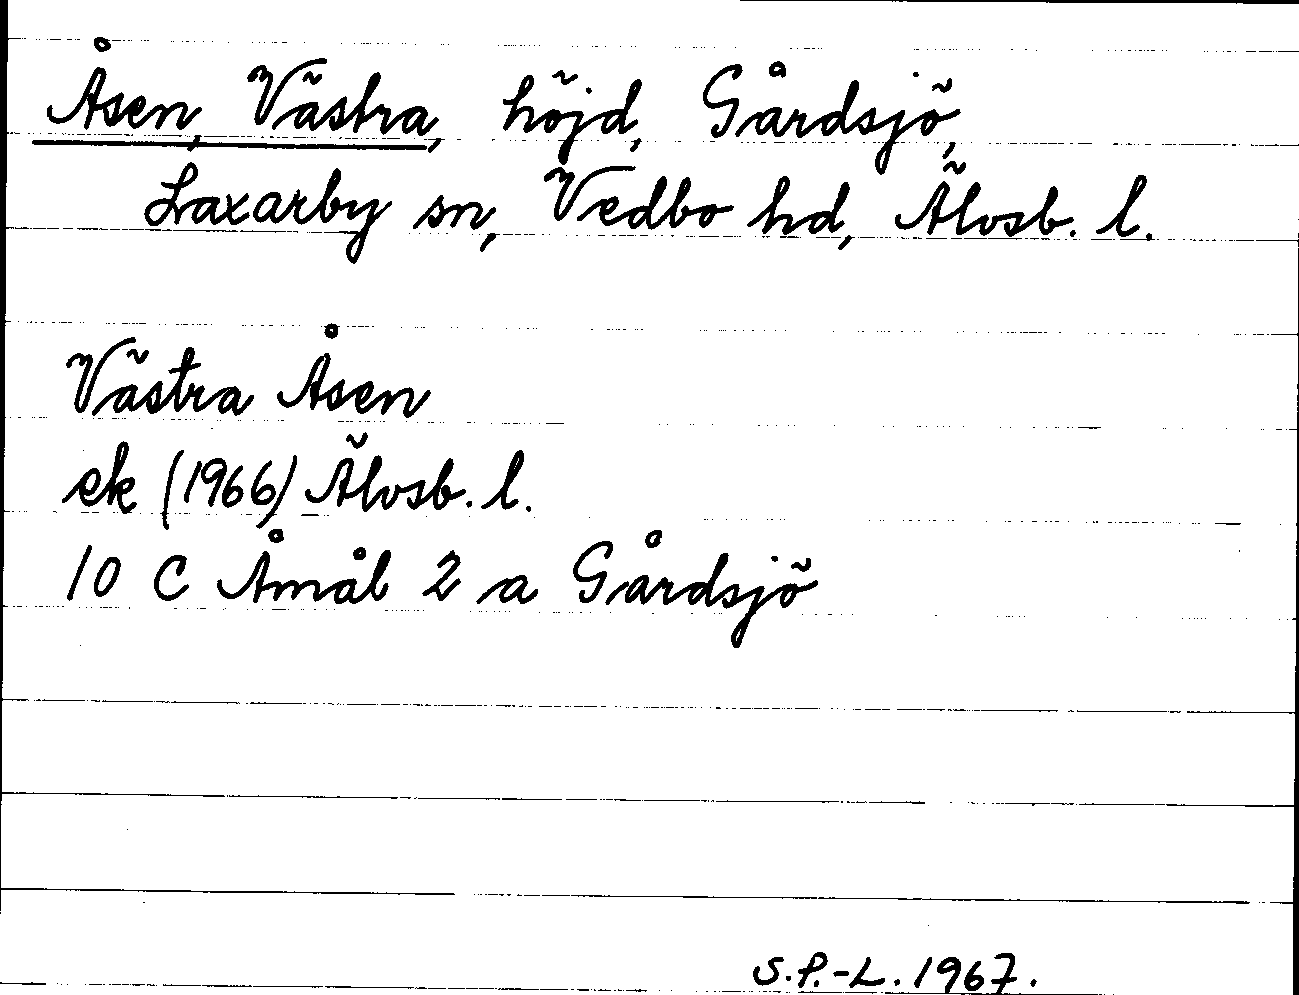 Åsen, Västra, höjd, Gårdsjö,
Laxarby sn, Vedbo hd, Älvsb. l.
Västra Åsen
ek (1966) Älvsb. l.
10 C Åmål 2 a Gårdsjö
S.P.-L. 1967.